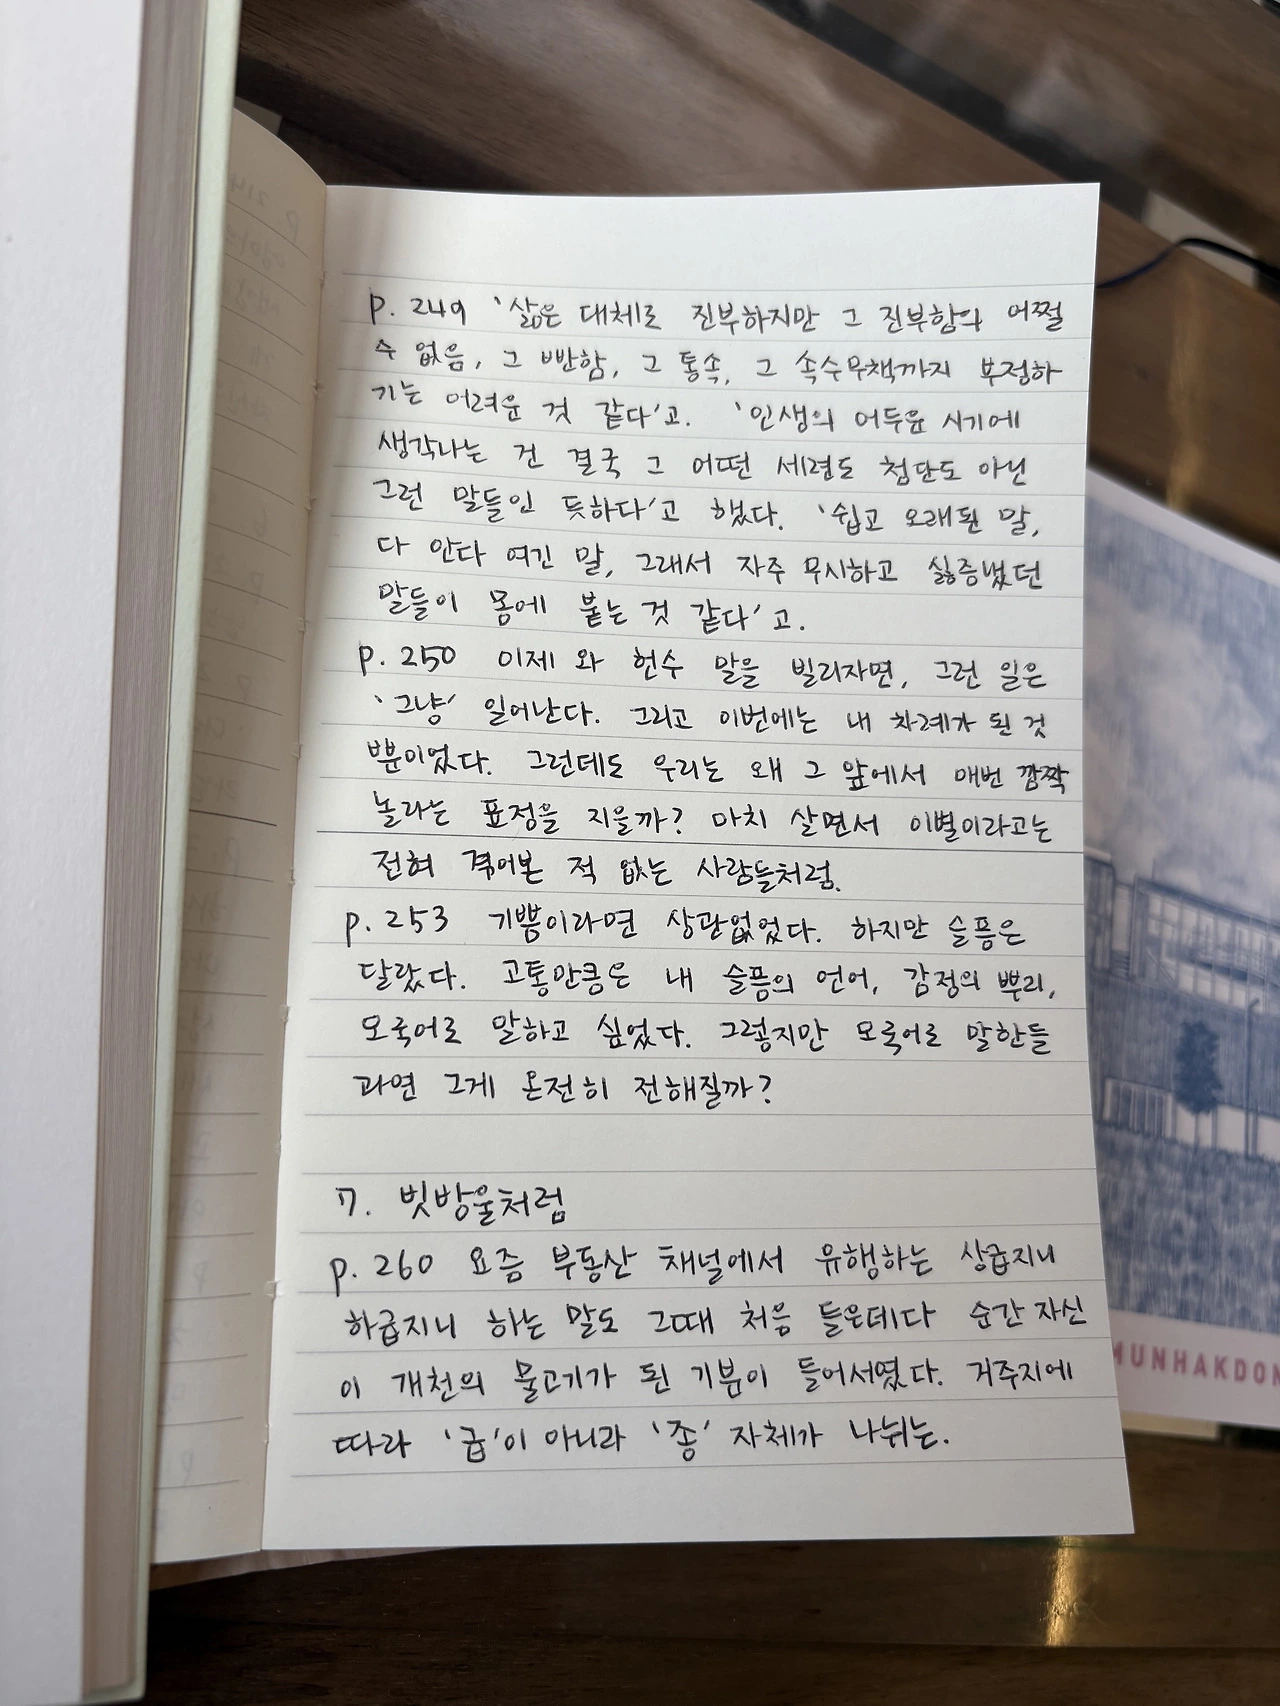 p. 249 '삶은 대체로 진부하지만 그 진부함의 어쩔
수 없음, 그 빤함, 그 통속, 그 속수무책까지 부정하
기는 어려운 것 같다'고. '인생의 어두운 시기에
생각나는 건 결국 그 어떤 세련도 첨단도 아닌
그런 말들인 듯하다'고 했다. '쉽고 오래된 말,
다 안다 여긴 말, 그래서 자주 무시하고 싫증냈던
말들이 몸에 붙는 것 같다'고.
p. 250 이제 와 헌수 말을 빌리자면, 그런 일은
'그냥' 일어난다. 그리고 이번에는 내 차례가 된 것
뿐이었다. 그런데도 우리는 왜 그 앞에서 매번 깜짝
놀라는 표정을 지을까? 마치 살면서 이별이라고는
전혀 겪어본 적 없는 사람들처럼.
p. 253 기쁨이라면 상관없었다. 하지만 슬픔은
달랐다. 고통만큼은 내 슬픔의 언어, 감정의 뿌리,
모국어로 말하고 싶었다. 그렇지만 모국어로 말한들
과연 그게 온전히 전해질까?
7. 빗방울처럼
p. 260 요즘 부동산 채널에서 유행하는 상급지니
하급지니 하는 말도 그때 처음 들은데다 순간 자신
이 개천의 물고기가 된 기분이 들어서였다. 거주지에
따라 '급'이 아니라 '종' 자체가 나뉘는.
MUNHAKDON